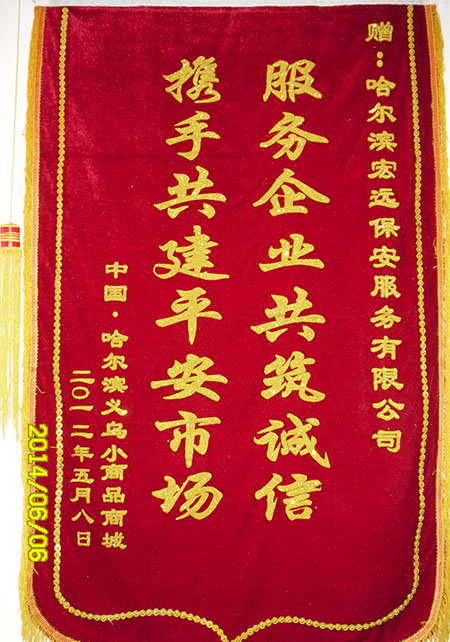 赠：哈尔滨宏远保安服务有限公司
服务企业共筑诚信
携手共建平安市场
中国·哈尔滨义乌小商品商城
二〇一二年五月八日
2014/06/06